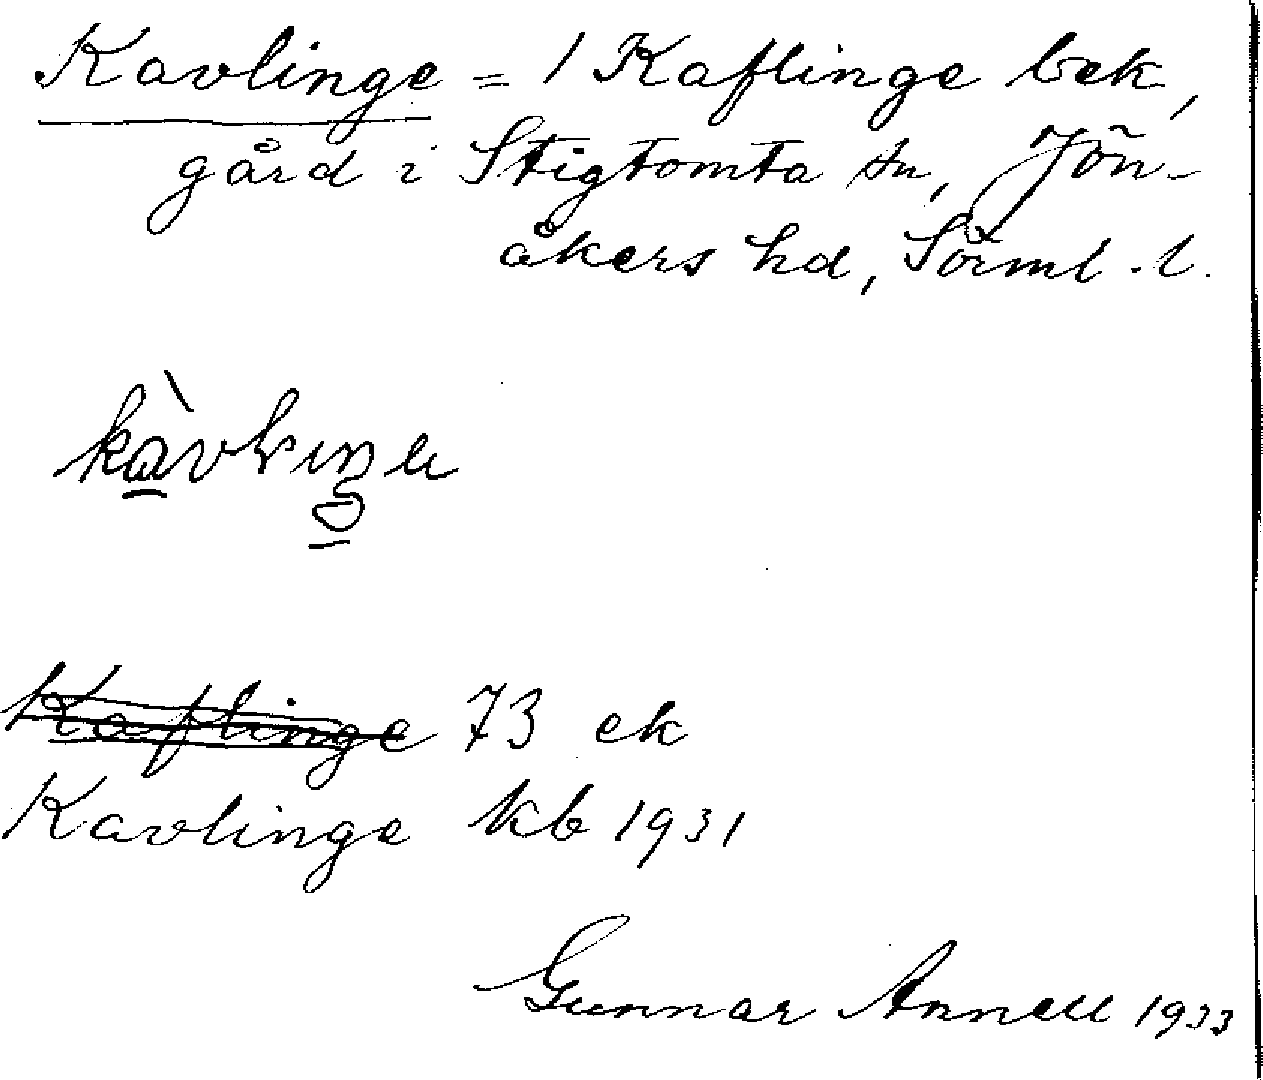 Kavlinge = / Kaflinge bek,
gård i Stigtomta sn, Jön-
åkers hd, Sörml. l.
Kaflinge 73 ek
Kavlinge kb 1931
Gunnar Annell 1933